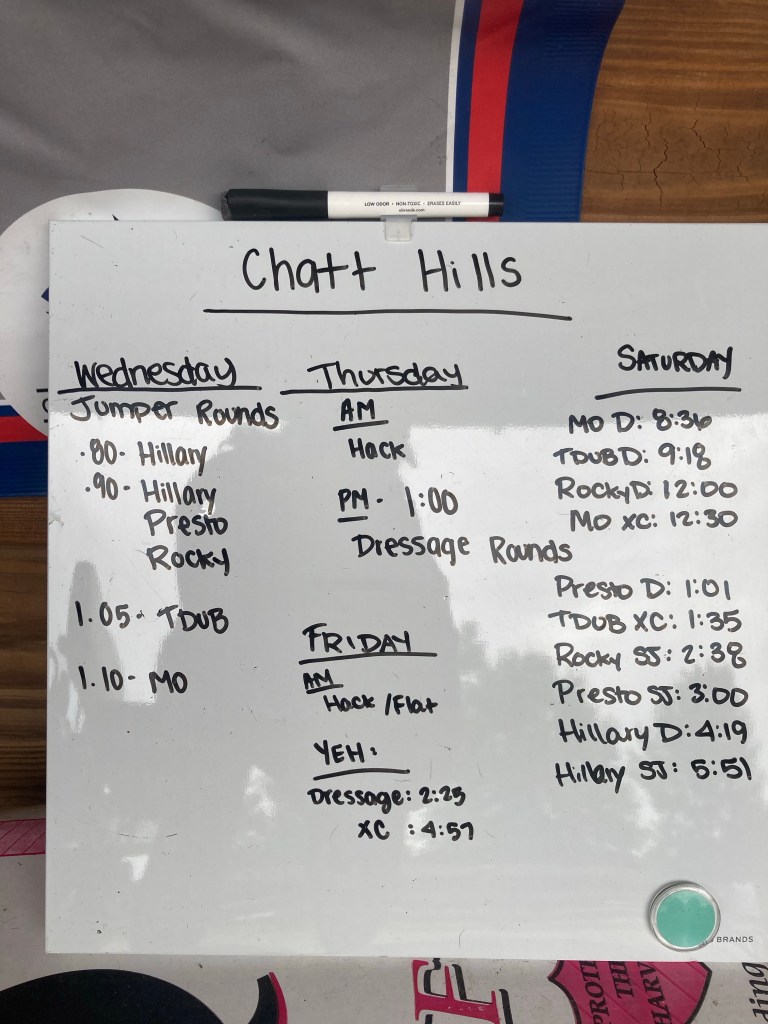 LOW ODOR • NON-TOXIC • ERASES EASILY
Chatt Hills
Wednesday
Jumper Rounds
.80- Hillary
.90- Hillary
Presto
Rocky
1.05- TDUB
1.10- MO
Thursday
AM
Hack
PM- 1:00
Dressage Rounds
FRIDAY
AM
Hack/Flat
YEH:
Dressage: 2:25
XC : 4:57
SATURDAY
MO D: 8:36
TDUB D: 9:18
Rocky D: 12:00
MO XC: 12:30
Presto D: 1:01
TDUB XC: 1:35
Rocky SJ: 2:38
Presto SJ: 3:00
Hillary D: 4:19
Hillary SJ: 5:51
BRANDS
PROT
THE
HARV
ding